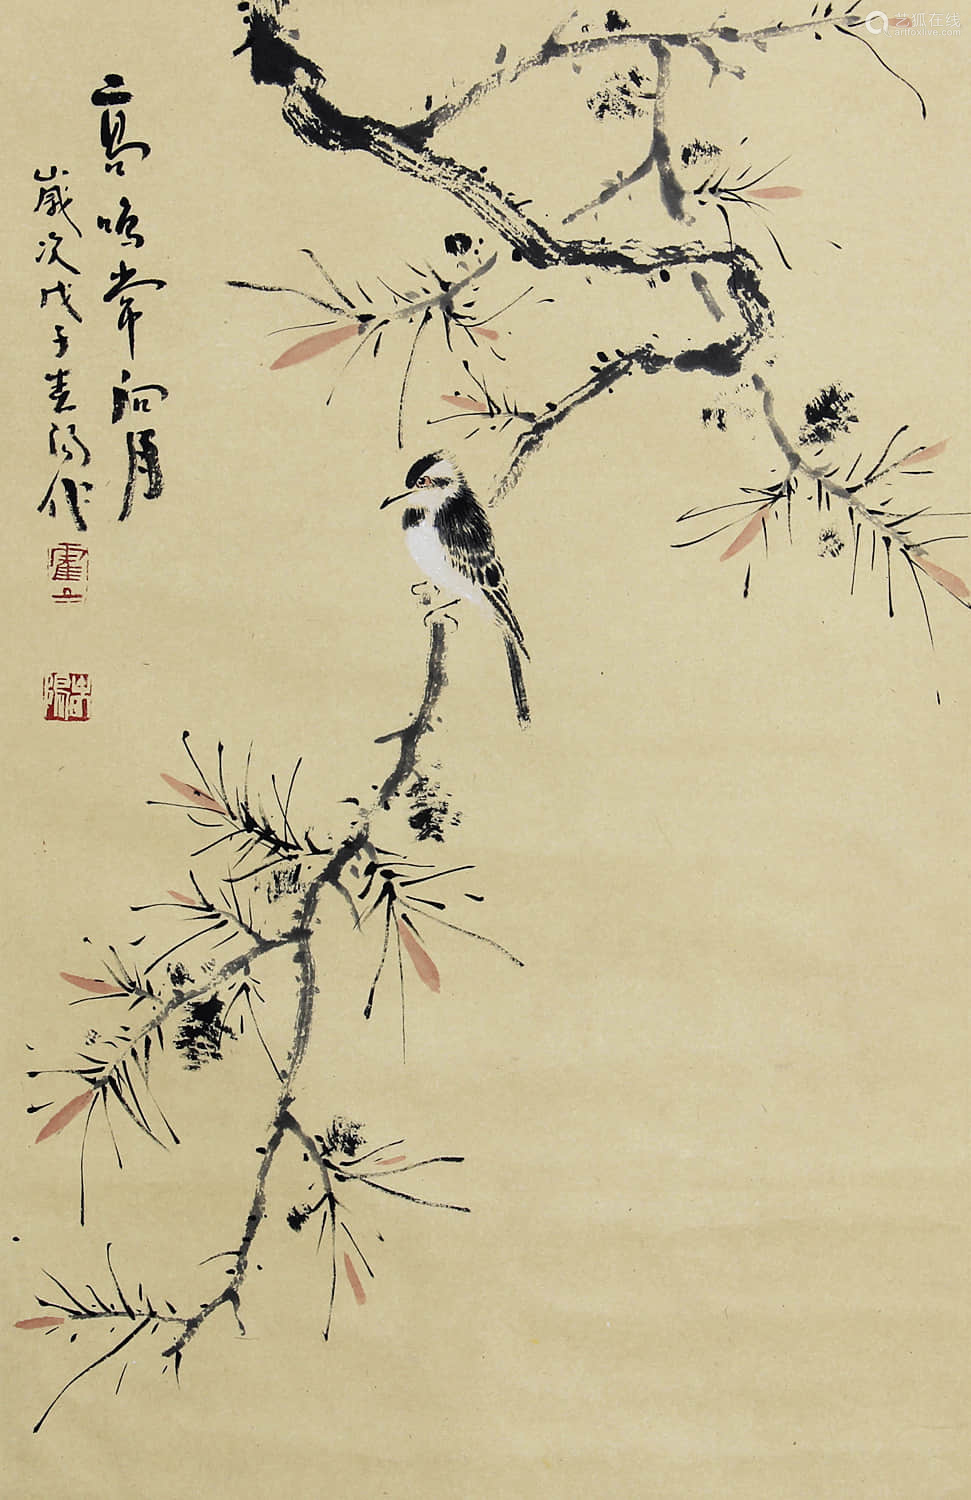 高鳴常向月
歲次戊子春陽作
霍
春陽
艺狐在线
artfoxlive.com